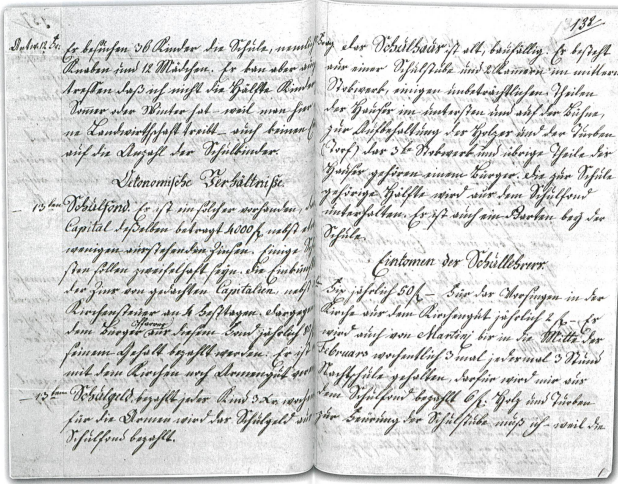 138
Antw. 12. Fr. Es besuchen 36 Kinder die Schule, nemlich
Knaben und 12 Mädchen. Es kan aber
treffen daß ich nicht die Hälfte Kinder
Sommer oder Winter hab – weil man hier
ne Landwirtschaft treibt – auch keinen
auf die Anzahl der Schulkinder.
Oekonomische Verhältniße.
13ten Schulfond. Es ist ein solcher vorhanden,
Capital desselben betragt 4000 fl. nebst
wenigen ausstehenden Zinsen. Einige
sten sollen zweifelhaft seyn. Die
der Zins von gedachten Capitalien, nebst
Kirchensteuer an 4 Festtagen. dargegen
dem Burger Pfarrer aus diesem Fond jährlich
seinem Gehalt bezahlt werden. Er ist
mit dem Kirchen noch Armengut
Schulgeld, bezahlt jedes Kind 3 xr.
für die Armen wird das Schulgeld aus
Schulfond bezahlt.
das Schulhaus ist alt, baufällig. Es besteht
aus einer Schulstube und 2 Kamern im mittern
Stokwerk, einigen unbeträchtlichen Theilen
des Hauses im untersten und auf der Bühne,
zur Aufbehaltung des Holzes und der Turben
(Torf) das 3te Stokwerk und übrige Theile des
Hauses gehören einem Burger. die zur Schule
gehörige Hälfte wird aus dem Schulfond
unterhalten. Es ist auch ein Garten bey der
Schule.
Einkomen des Schullehrers.
jährlich 50 fl. – Für das Vorsingen in der
Kirche aus dem Kirchengut jährlich fl. – Es
wird auch von Martinj bis in die Mitte des
Februars wochentlich 3 mal jedesmal 3 Stund
Nachtschule gehalten, dafür wird mir aus
dem Schulfond bezahlt 6 fl. Holz und Turben
zur Heurung der Schulstube muß ich – weil die